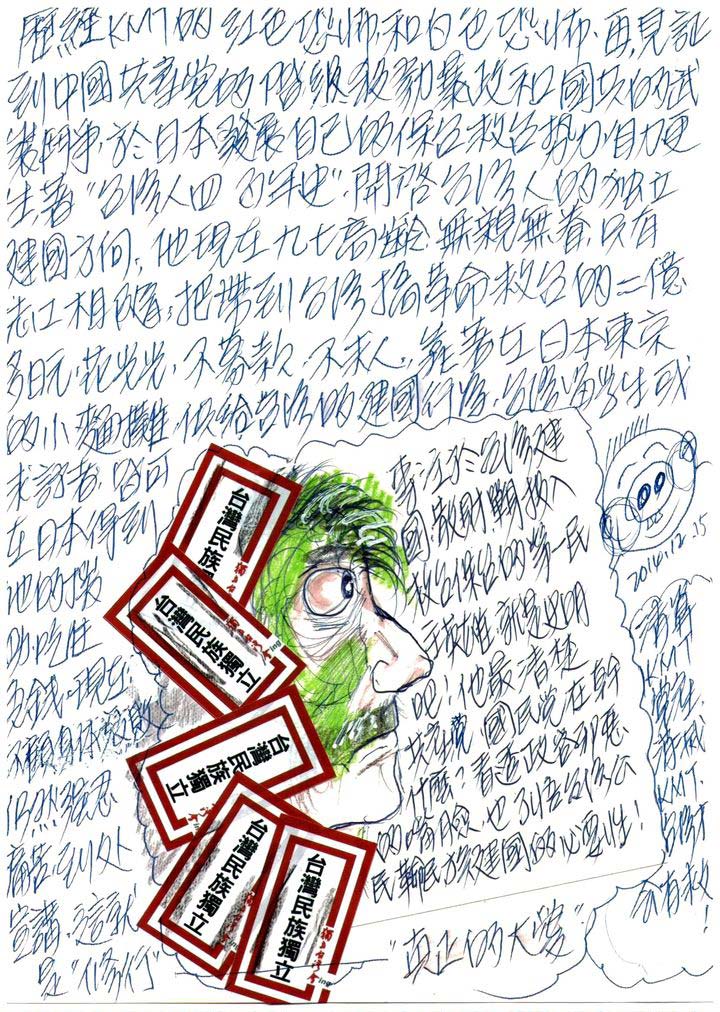 歷經KMT的紅色恐怖和白色恐怖,再見証
到中國共產党的階級殺勠暴政和國共的武
裝鬥爭,於日本發展自己的保台救台势力,自力更
生著"台湾人四百年史",開啓台湾人的独立
建國方向,他現在九七高齡,無親無眷,只有
志工相隨,把帶到台湾搞革命救台的二億
多日元,花光光,不募款,不求人,靠著在日本東京
的小麵攤,供給台湾的建國行動,台湾留学生或
求訪者,皆可
在日本得到
他的幫
助,吃住
包錢,現在
不顧身体
仍然強忍
痛苦,到处
宣講,這就
是"修行"
專注於台湾建
國,散財戰投入
救台保台的第一民
主英雄就是史明
吧!他最清楚
共產党國民党在幹
什麼?看透政客邪惡
的嘴臉,也引導台湾公
民輸民族建國的必要性!
2014.12.15
清算
KMT
党產
消滅
KMT,
台湾才
会有救
!
"真正的大愛"
台灣民族獨立
台灣民族獨立
ing
台灣民族獨立
台灣民族獨立
台灣民族獨立
ing